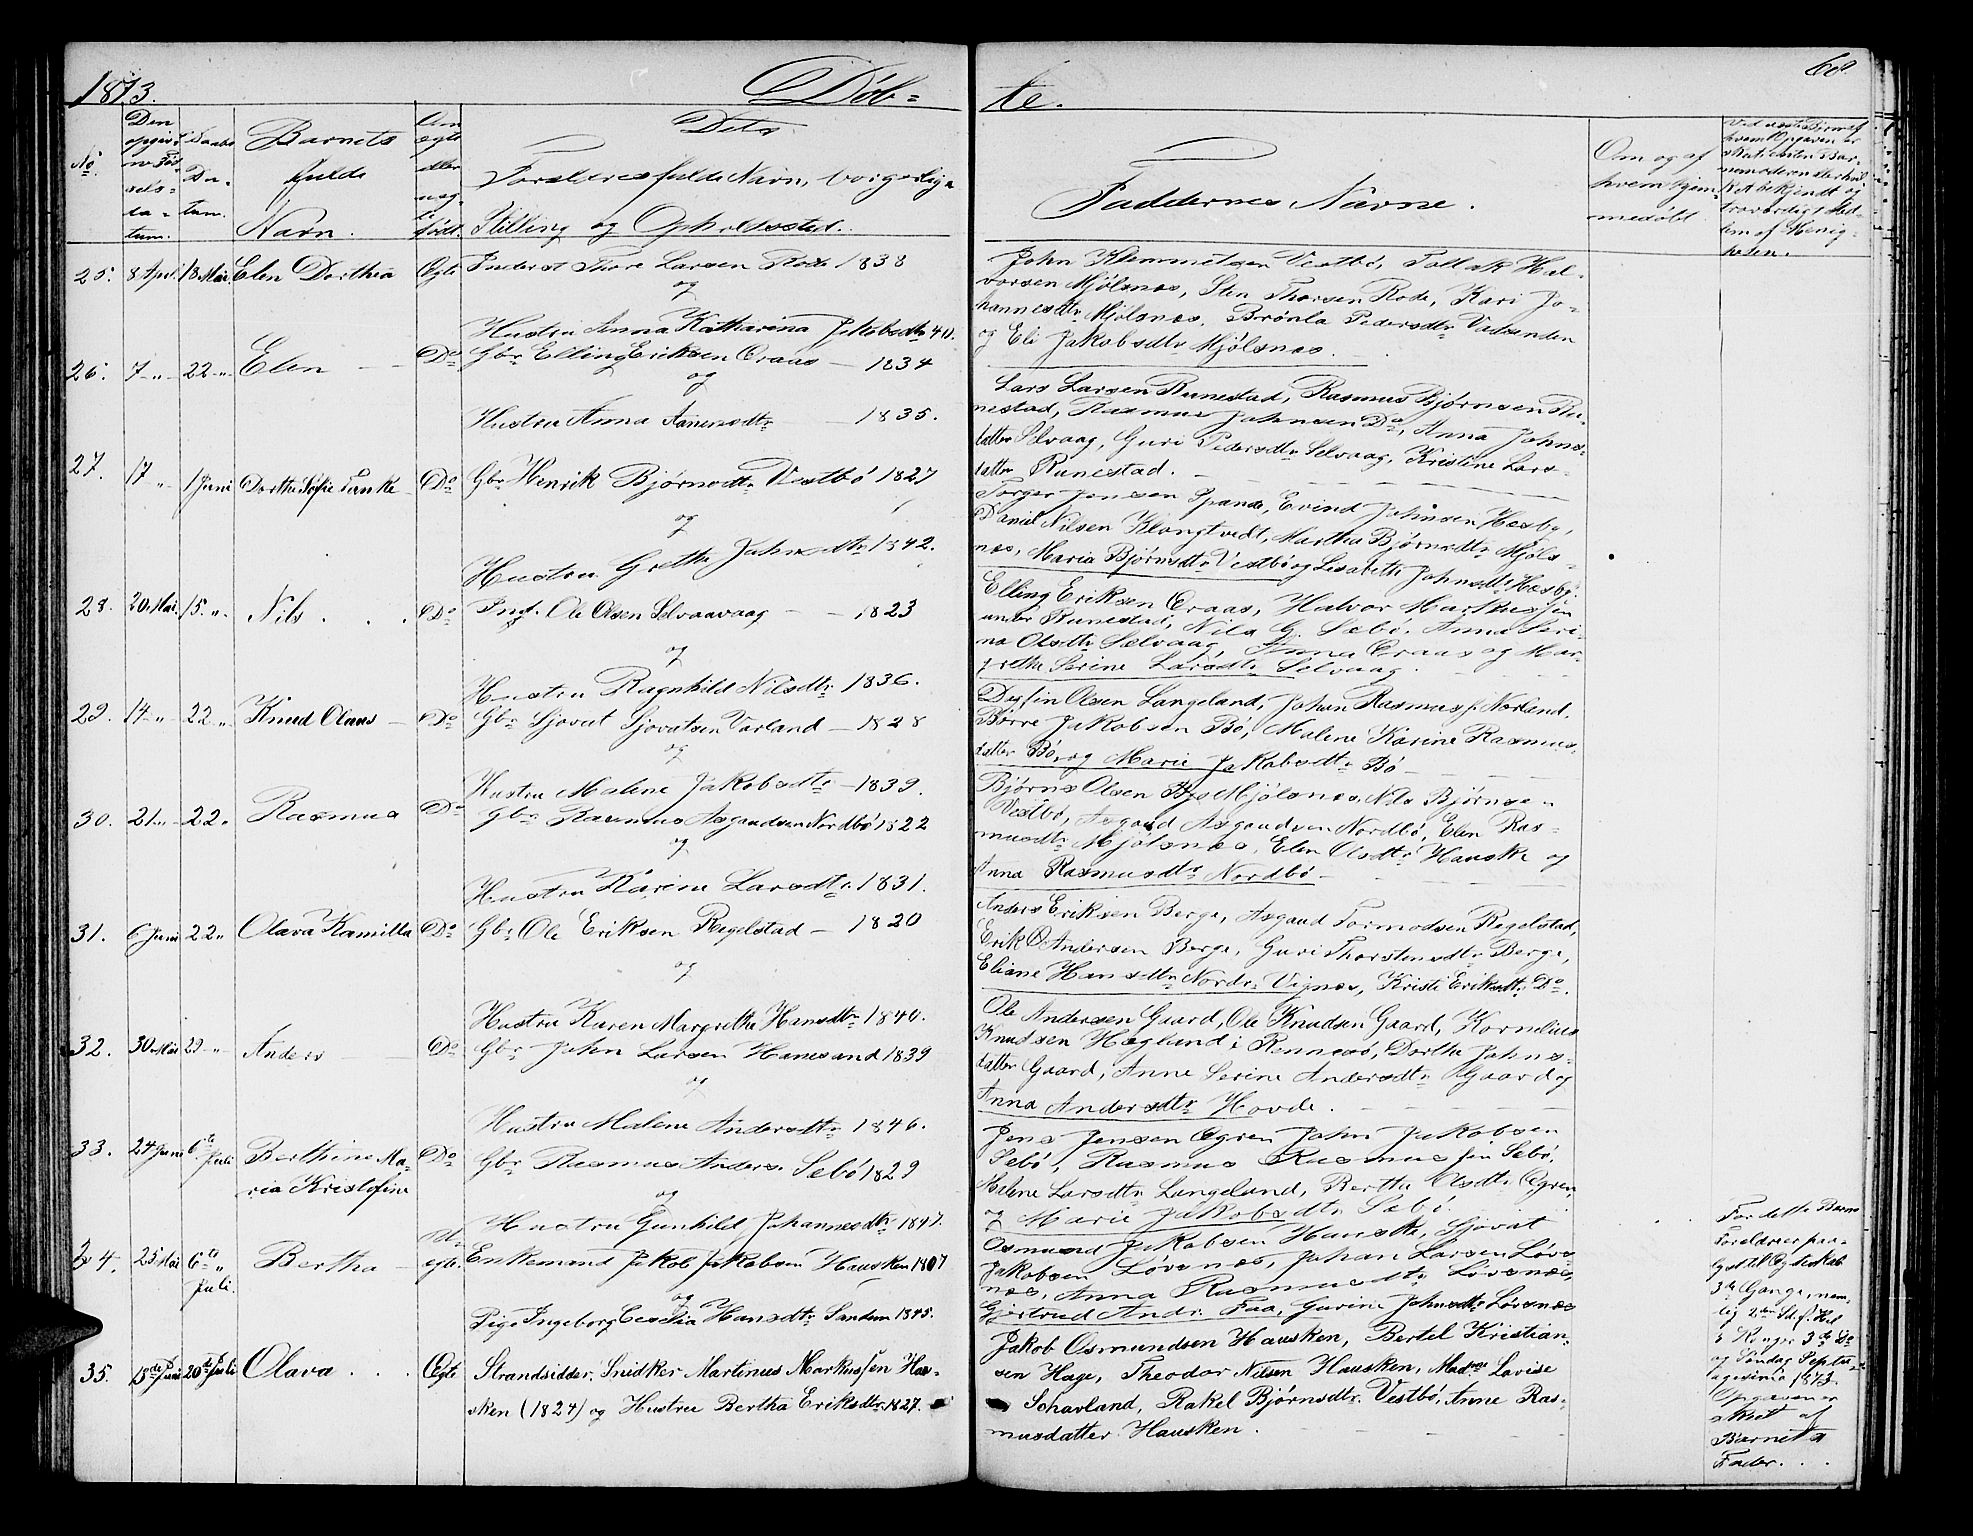 1873.
Döb=
te.
60.
No.
Den opgivne Fødselsdatum.
Daabs Datum.
Barnets fulde Navn.
Om ægte eller uægte født.
Dets
Forældres fulde Navn, borgerlige
Stilling og Opholdssted.
Faddernes Navne.
Om og af
hvem hjem-
medøbt.
25. 8 April 18 Mai. Elen Dorthea Ægte Inderst Thore Larsen Rode 1838
og
Hustru Anna Katharina Jakobsdtr 40.
John Klemmetsen Vestbö, Tollak Hal-
vorsen Mjölsnes, Sten Thorsen Rode, Kari Jo-
hannesdtr Mjölsnes, Brönla Pedersdtr Valsanden
og Eli Jakobsdtr Mjölsnes.
26. 7 " 22 " Elen Do Gbr Elling Eriksen Craas 1834
og
Hustru Anna Aanensdtr 1835.
Lars Larsen Runestad, Rasmus Björnsen Ru-
nestad, Rasmus Johnsen Do, Anna Johns-
datter Selvaag, Guri Pedersdtr Selvaag, Kristine Lars-
datter Runestad.
27. 17 " 1 Juni Dorthe Sofie Do Gbr Henrik Björnsdtr Vestbö 1827
og
Hustru Grethe Johnsdtr 1842.
Torger Jensen Spanne, Eivind Johnsen Hæsbø,
Daniel Nilsen Klongtvedt, Martha Björnsdtr Mjöls-
nes, Maria Björnsdtr Vestbö og Lisabeth Johnsdtr Hæsbø.
28. 20 Mai. 15. " Nils . . . Do Ingf. Ole Olsen Selvaavaag 1823
og
Hustru Ragnhild Nilsdtr 1836.
Elling Eriksen Craas, Halvor Markussen
Runestad, Nils G. Sæbö, Anna Seri-
na Olsdtr Selvaag, Anna Craas og Mar-
grethe Serine Larsdtr Selvaag.
29. 14 " 22 " Knud Olaus Do Gbr Sjovat Sjovatsen Varland 1828
og
Hustru Malene Jakobsdtr 1839.
Olsen Langeland, Johan Rasmussen Norland,
Börre Jakobsen Bö, Malene Karine Rasmus-
datter Bö og Marie Jakobsdtr Bö
30. 21 " 22 " Rasmus Do Gbr Rasmus Asgaudsen Nordbö 1822
og
Hustru Karina Larsdtr 1831.
Björns Olsen Mjölsnes, Nils Björnsen
Vestbö, Asgaud Asgaudsen Nordbö, Elen Ras-
musdtr Mjölsnes, Elen Olsdtr Hauske og
Anna Rasmusdtr Nordbö
31. 6 Juni 22 " Olava Kamilla Do Gbr Ole Eriksen Regelstad 1820
og
Hustru Karen Margrethe Hansdtr 1840.
Anders Eriksen Berge, Asgaud Tormodsen Regelstad,
Erik Andersen Berge, Guri Thorstensdtr Berge,
Eliane Hansdtr Nordr. Vignes, Kristi Eriksdtr Do.
32. 30 Mai 29 " Anders Do Gbr John Larsen Hanesand 1839
og
Hustru Malene Andersdtr 1846.
Ole Andersen Gaard, Ole Knudsen Gaard, Kornelius
Knudsen Hegland i Rennesö, Dorthe Johns-
datter Gaard, Anne Serine Andersdtr Gaard og
Anna Andersdtr Hovde.
33. 24 Juni 6te Juli Berthine Ma-
ria Kristofine Do Gbr Rasmus Anders. Sebö 1829
og
Hustru Gunhild Johannesdtr 1847.
Jens Jensen Ögren, John Jakobsen
Sebö, Rasmus Rasmussen Sebö,
Malene Larsdtr Langeland, Berthe Olsdtr Ögren,
og Marie Jakobsdtr Sebö.
34. 25 Mai 6te " Juli. Bertha Uægte. Enkemand Jakob Jakobsen Hausken 1807
og
Pige Ingeborg Cecilia Hansdtr Sandem 1845.
Osmund Jakobsen Hauske, Sjovat
Jakobsen Lövsnes, Johan Larsen Lövs-
nes, Anna Rasmusdtr Lövsnes,
Gjertrud Andr. Faa, Gurine Johnsdtr Lövsnes
For dette Barns
Forældrer paa-
3de Gange, nem-
og Søndag Septua-
gesima 1873.
Opgaven er
skeet af
Barnets
Fader. . .
35. 18de Juni 20de Juli Olava . . . Ægte Strandsidder, Snidker Martinus Markussen Hau-
sken (1824) og Hustru Bertha Eriksdtr 1827.
Jakob Osmundsen Hausken, Bertel Kristian-
sen Hage, Theodor Nilsen Hausken, Madme Lovise
Scharland, Rakel Björnsdtr. Vestbö, Anne Ras-
musdatter Hausken.